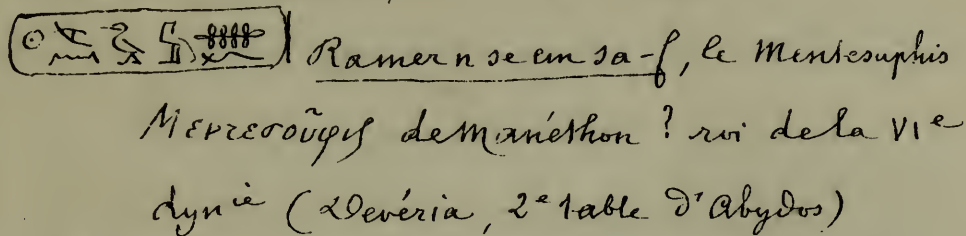 Ramernse em sa-f, le Mentesuphis
Μεντεσοῦφις de Manéthon ? roi de la VIe
dynie (Devéria, 2e table d'Abydos)